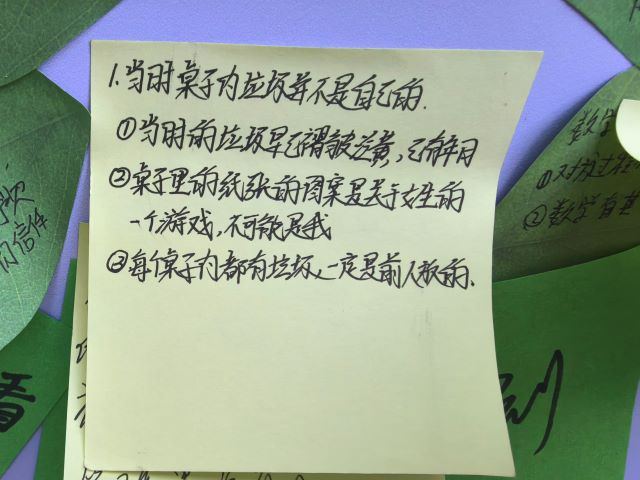 1.当时桌子内垃圾并不是自己的.
①当时的垃圾早已褶皱泛黄,已有年月
②桌子里的纸张的图案是关于女生的
一个游戏,不可能是我
③每个桌子内都有垃圾、一定是前人放的.
数学
①对方过
②数学有
看
别